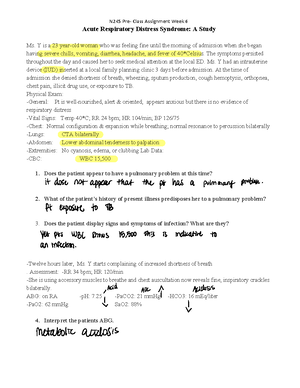 N245 Pre-Class Assignment Week 4
Acute Respiratory Distress Syndrome: A Study
Ms. Y is a 23 year-old woman who was feeling fine until the morning of admission when she began
having severe chills, vomiting, diarrhea, headache, and fever of 40°Celsius. The symptoms persisted
throughout the day and caused her to seek medical attention at the local ED. Ms. Y had an intrauterine
device (IUD) inserted at a local family planning clinic 3 days before admission. At the time of
admission she denied shortness of breath, wheezing, sputum production, cough, hemoptysis, orthopnea,
chest pain, illicit drug use, or exposure to TB.
Physical Exam:
-General Pt is well-nourished, alert & oriented, appears anxious but there is no evidence of
respiratory distress
-Vital Signs: Temp 40°C, RR 24 bpm, HR 104/min, BP 126/75
-Chest: Normal configuration & expansion while breathing, normal resonance to percussion bilaterally
-Lungs: CTA bilaterally
-Abdomen: Lower abdominal tenderness to palpation
-Extremities: No cyanosis, edema, or clubbing Lab Data
-CBC: WBC 15,500
1. Does the patient appear to have a pulmonary problem at this time?
it does not appear that the pt has a pulmonary problem.
2. What of the patient's history of present illness predisposes her to a pulmonary problem?
Pt exposure to TB
3. Does the patient display signs and symptoms of infection? What are they?
yes pts WBC 15,500 this is indicative to
an infection.
-Twelve hours later, Ms. Y starts complaining of increased shortness of breath
Assessment: -RR 34 bpm, HR 120/min
-She is using accessory muscles to breathe and chest auscultation now reveals fine, inspiratory crackles
bilaterally
ABG: on RA -pH: 7.25 -PaCO2: 21 mmHg -HCO3: 16 mEq/liter
-PaO2: 62 mmHg SaO2: 88%
4. Interpret the patients ABG.
Metabolic acidosis